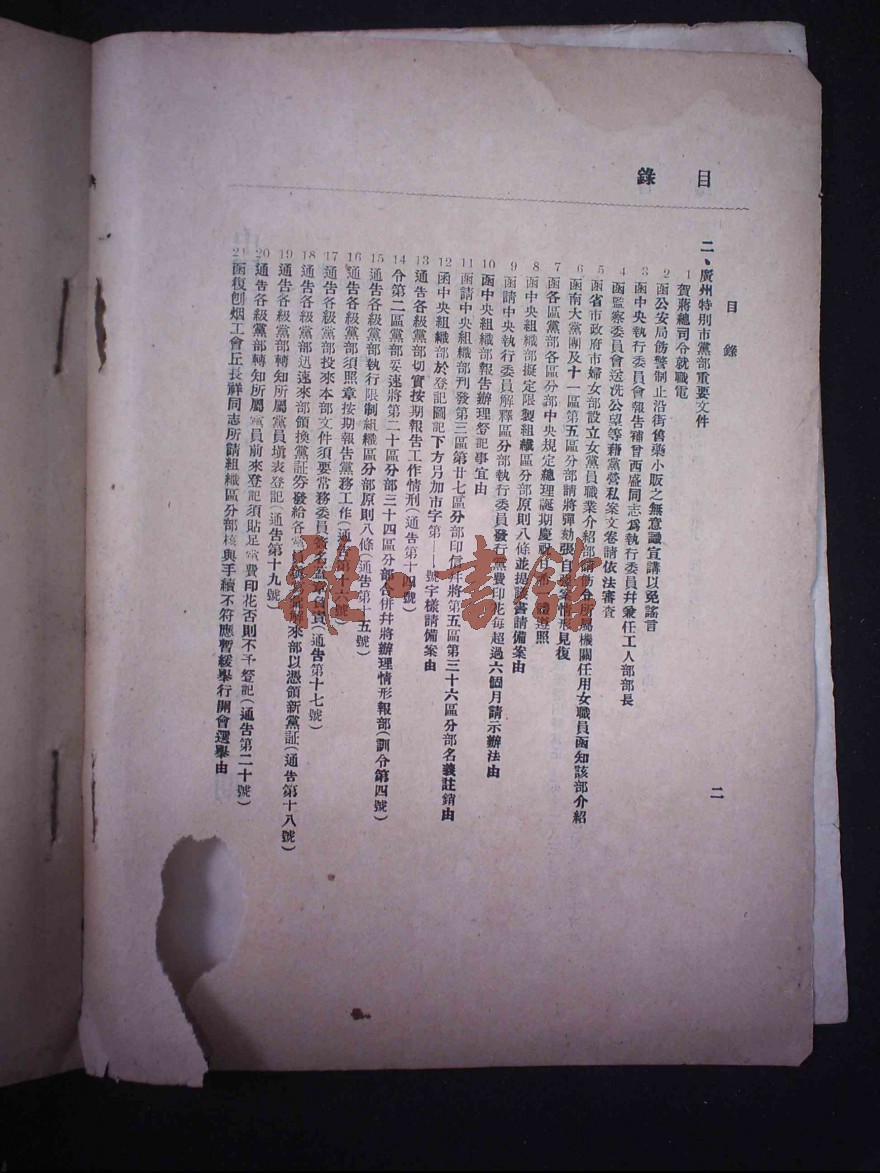 目錄
目錄
二、廣州特別市黨部重要文件
1 賀蔣總司令就職電
2 函公安局飭警制止沿街舊藥小販之無意識宣講以免謠言
3 函中央執行委員會報告補曾西盛同志爲執行委員幷兼任工人部部長
4 函監察委員會送冼公望等藉黨營私案文卷請依法審查
5 函省市政府市婦女部設立女黨員職業介紹部請飭令所屬機關任用女職員函知該部介紹
6 函南大黨團及十一區第五區分部請將彈劾張自強案情形見復
7 函各區黨部各區分部中央規定總理誕期慶祝 遵照
8 函中央組織部擬定限制組織區分部原則八條並提 書請備案由
9 函請中央執行委員解釋區分部執行委員發行黨費印花每超過六個月請示辦法由
10 函中央組織部報告辦理登記事宜由
11 函請中央組織部刊發第三區第廿七區分部印信幷將第五區第三十六區分部名義註銷由
12 函中央組織部於登記圖記下方另加市字第——號字樣請備案由
13 通告各級黨部切實按期報告工作情刑(通告第十四號)
14 令第二區黨部妥速將第二十區分部三十四區分部合併幷將辦理情形報部(訓令第四號)
15 通告各級黨部執行限制組織區分部原則八條(通告第十五號)
16 通告各級黨部須照章按期報告黨務工作(通告第十六號)
17 通告各級黨部投來本部文件須要常務委員簽名蓋章負責(通告第十七號)
18 通告各級黨部迅速來部領換黨証劵發給各黨員 來部以憑領新黨証(通告第十八號)
19 通告各級黨部轉知所屬黨員塡表登記(通告第十九號)
20 通告各級黨部轉知所屬黨員前來登記須貼足黨費印花否則不予登記(通告第二十號)
21 函復刨烟工會丘長祥同志所請組織區分部核與手續不符應暫緩舉行開會選舉由
二